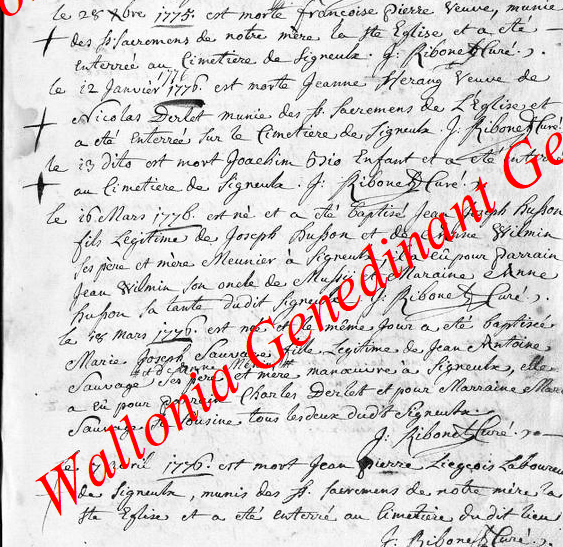 le 28 Xbre 1775. est morte francoise Pierre Veuve, munie
des st. Sacremens de notre mère la Ste Eglise et a eté
enterreé au Cimetiere de Signeulx. J: Ribonet Curé.
le 12 Janvier 1776. est morte Jeanne Veuve de
Nicolas Derlet munie des st. Sacremens de L'Eglise et
a eté enterré sur le Cimetiére de Signeulx J. Ribonet Curé
le 13 dito est mort Joachim Enfant et a eté enterré
au Cimetiere de Signeulx. J: Ribonet Curé.
le 16 Mars 1776. est né et a eté baptisé Jean Joseph husson
fils Legitime de Joseph husson et de Wilmin
Ses père et mère Meunier à Signeulx, il a eû pour Parrain
Jean Wilmin son oncle de Mussi et Maraine Anne
husson sa tante dudit Signeulx J: Ribonet Curé.
le 18 mars 1776. est neé et le même Jour a eté baptiseé
Marie Joseph Sauvage fille Legitime de Jean Antoine
et d'
Sauvage Ses père et mère manœuvre à Signeulx, elle
a eû pour Parrain Charles Derlet et pour Marraine Marie
Sauvage sa Cousine tous les deux dudit Signeulx
J: Ribonet Curé.
le avril 1776. est mort Jean pierre Liegeois Laboureur
de Signeulx, munis des st. sacremens de notre mère la
Ste Eglise et a eté enterré au Cimetiére du dit lieu
J: Ribonet Curé.
Wallonia Genedinant Ge